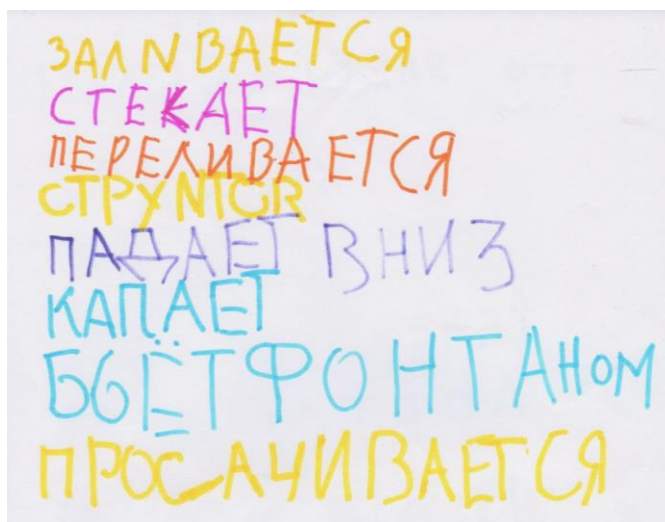 ЗАЛNВАЕТСЯ
СТЕКАЕТ
ПЕРЕЛИВАЕТСЯ
СТРУNТСЯ
ПАДАЕТ ВНИЗ
КАПАЕТ
БЬЁТ ФОНТАНОМ
ПРОСАЧИВАЕТСЯ